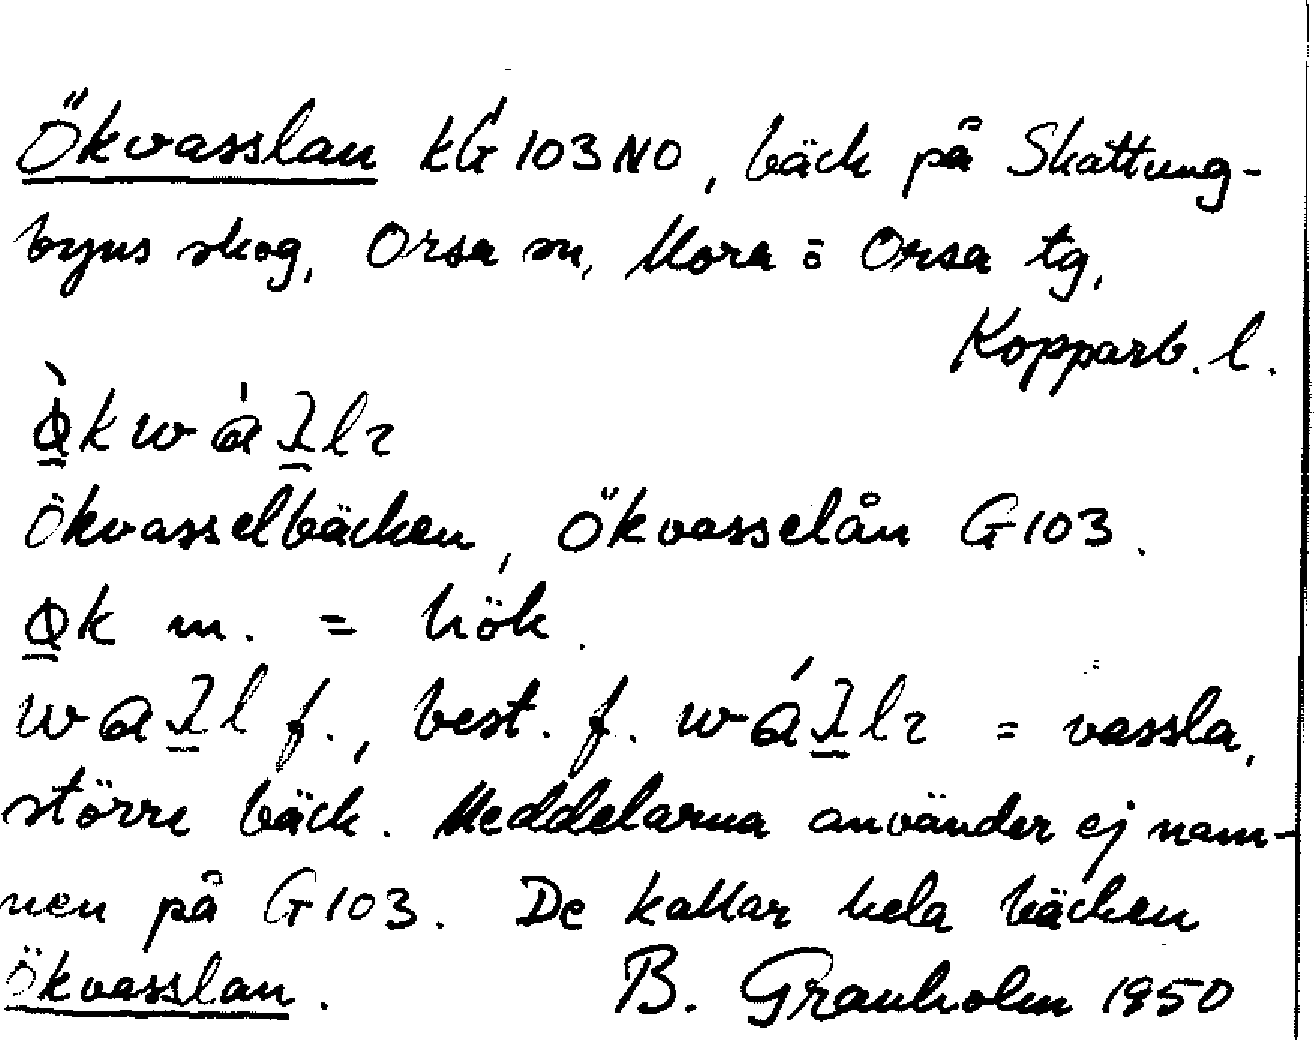 Ökvasslan kG 103 NO, bäck på Skattung-
byns skog, Orsa sn, Mora o Orsa tg,
Kopparb. l.
Ökvasselbäcken, Ökvasselån G 103.
m. = hök.
f., best. f. = vassla,
större bäck. Meddelarna använder ej nam-
nen på G 103. De kallar hela bäcken
Ökvasslan. B. Granholm 1950